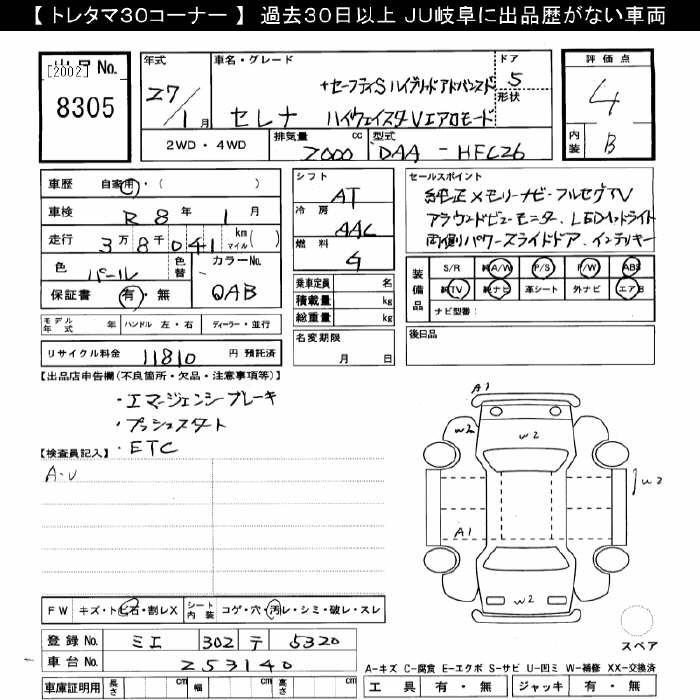 【 トレタマ30コーナー 】 過去30日以上 JU岐阜に出品歴がない車両
出品No.
[2002]
8305
年式
27/1月
車名・グレード
+セーフティS ハイブリッドアドバンスド
セレナ ハイウェイスターVエアロモード
ドア
5
形状
2WD・4WD
排気量 2000 cc
型式 DAA - HFC26
評価点
4
内装
B
車歴 自家用・( )
車検 R 8年 1月
走行 3万8千041 km マイル( )
色 パール 色替
カラーNo. QAB
保証書 有・無
モデル年式 年 ハンドル 左・右 ディーラー・並行
リサイクル料金 11810 円 預託済
シフト AT
冷房 AAC
燃料 G
乗車定員 名
積載量 kg
総重量 kg
名変期限 月 日
セールスポイント
純正メモリーナビ・フルセグTV
アラウンドビューモニター、LEDヘッドライト
両側パワースライドドア、インテリキー
装備品
S/R 純A/W P/S P/W ABS
純TV 純ナビ 革シート 外ナビ エアB
ナビ型番:
後日品
【出品店申告欄(不良箇所・欠品・注意事項等)】
・エマージェンシーブレーキ
・プッシュスタート
・ETC
【検査員記入】
A・U
A1
W2
W2
W2
A1
W2
FW キズ・トビ石・割レX シート内装 コゲ・穴・汚レ・シミ・破レ・スレ
登録No. ミエ 302 テ 5320
車台No. 253140
車庫証明用 長さ cm 幅 cm 高さ cm
スペア
A-キズ C-腐食 E-エクボ S-サビ U-凹ミ W-補修 XX-交換済
工具 有・無 ジャッキ 有・無